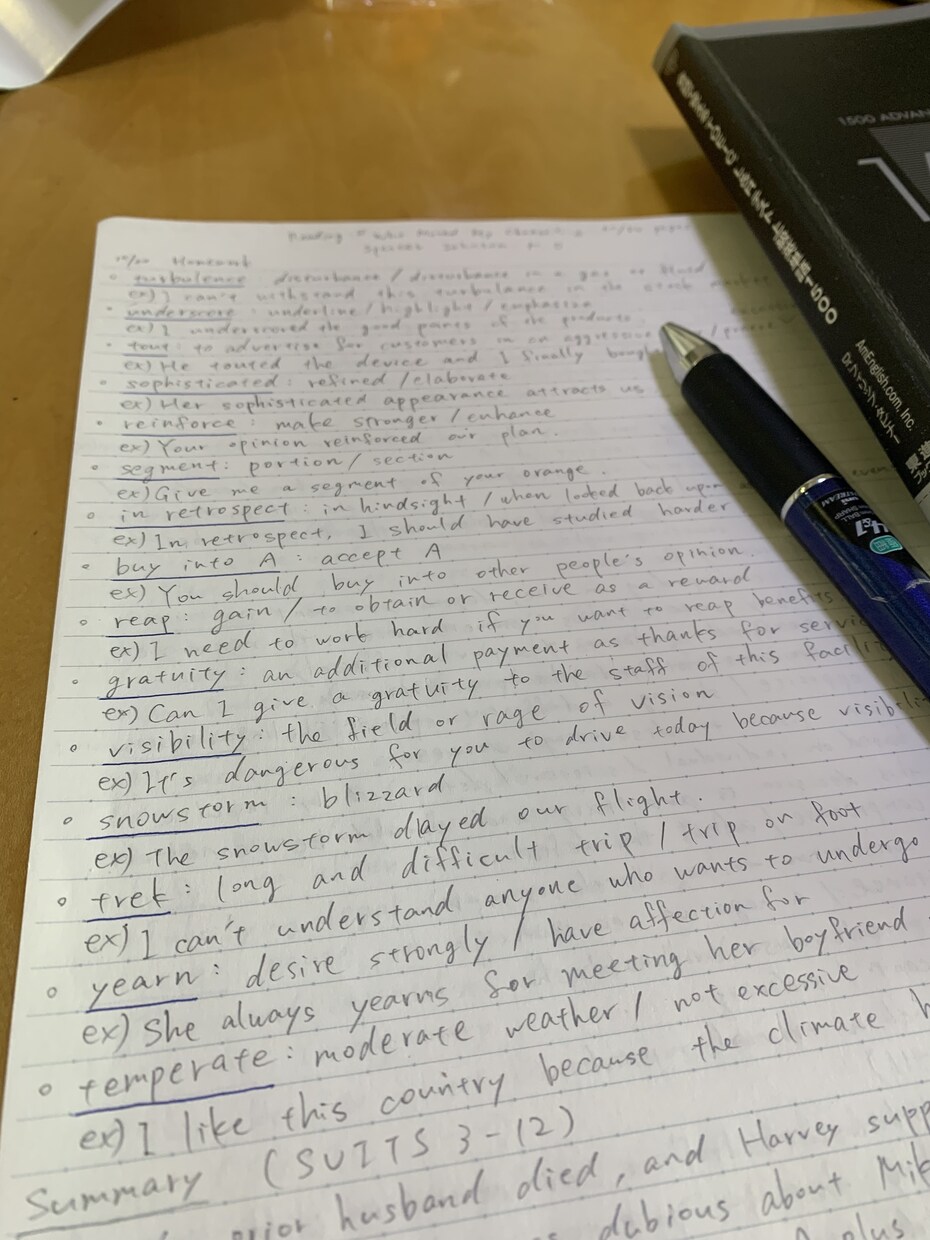 Homework
turbulence disturbance / disturbance in a gas or fluid
ex) I can't withstand this turbulance in the stock market
underscore : underline / highlight / emphasize
ex) I underscored the good points of the products.
tout : to advertise for customers in an aggressive
ex) He touted the device and I finally
sophisticated : refined / elaborate
ex) Her sophisticated appearance attracts us
reinforce : make stronger / enhance
ex) Your opinion reinforced our plan.
segment : portion / section
ex) Give me a segment of your orange.
in retrospect : in hindsight / when looked back upon
ex) In retrospect, I should have studied harder
buy into A : accept A
ex) You should buy into other people's opinion.
reap : gain / to obtain or receive as a reward
ex) I need to work hard if you want to reap benefits
gratuity : an additional payment as thanks for
ex) Can I give a gratuity to the staff of this
visibility : the field or rage of vision
ex) It's dangerous for you to drive today because
snowstorm : blizzard
ex) The snowstorm dlayed our flight.
trek : long and difficult trip / trip on foot
ex) I can't understand anyone who wants to undergo
yearn : desire strongly / have affection for
ex) She always yearns for meeting her boyfriend
temperate : moderate weather / not excessive
ex) I like this country because the climate
Summary (SUITS 3-12)
prior husband died, and Harvey
dubious about
plus
1500
AmEnglish.com, Inc.
uni